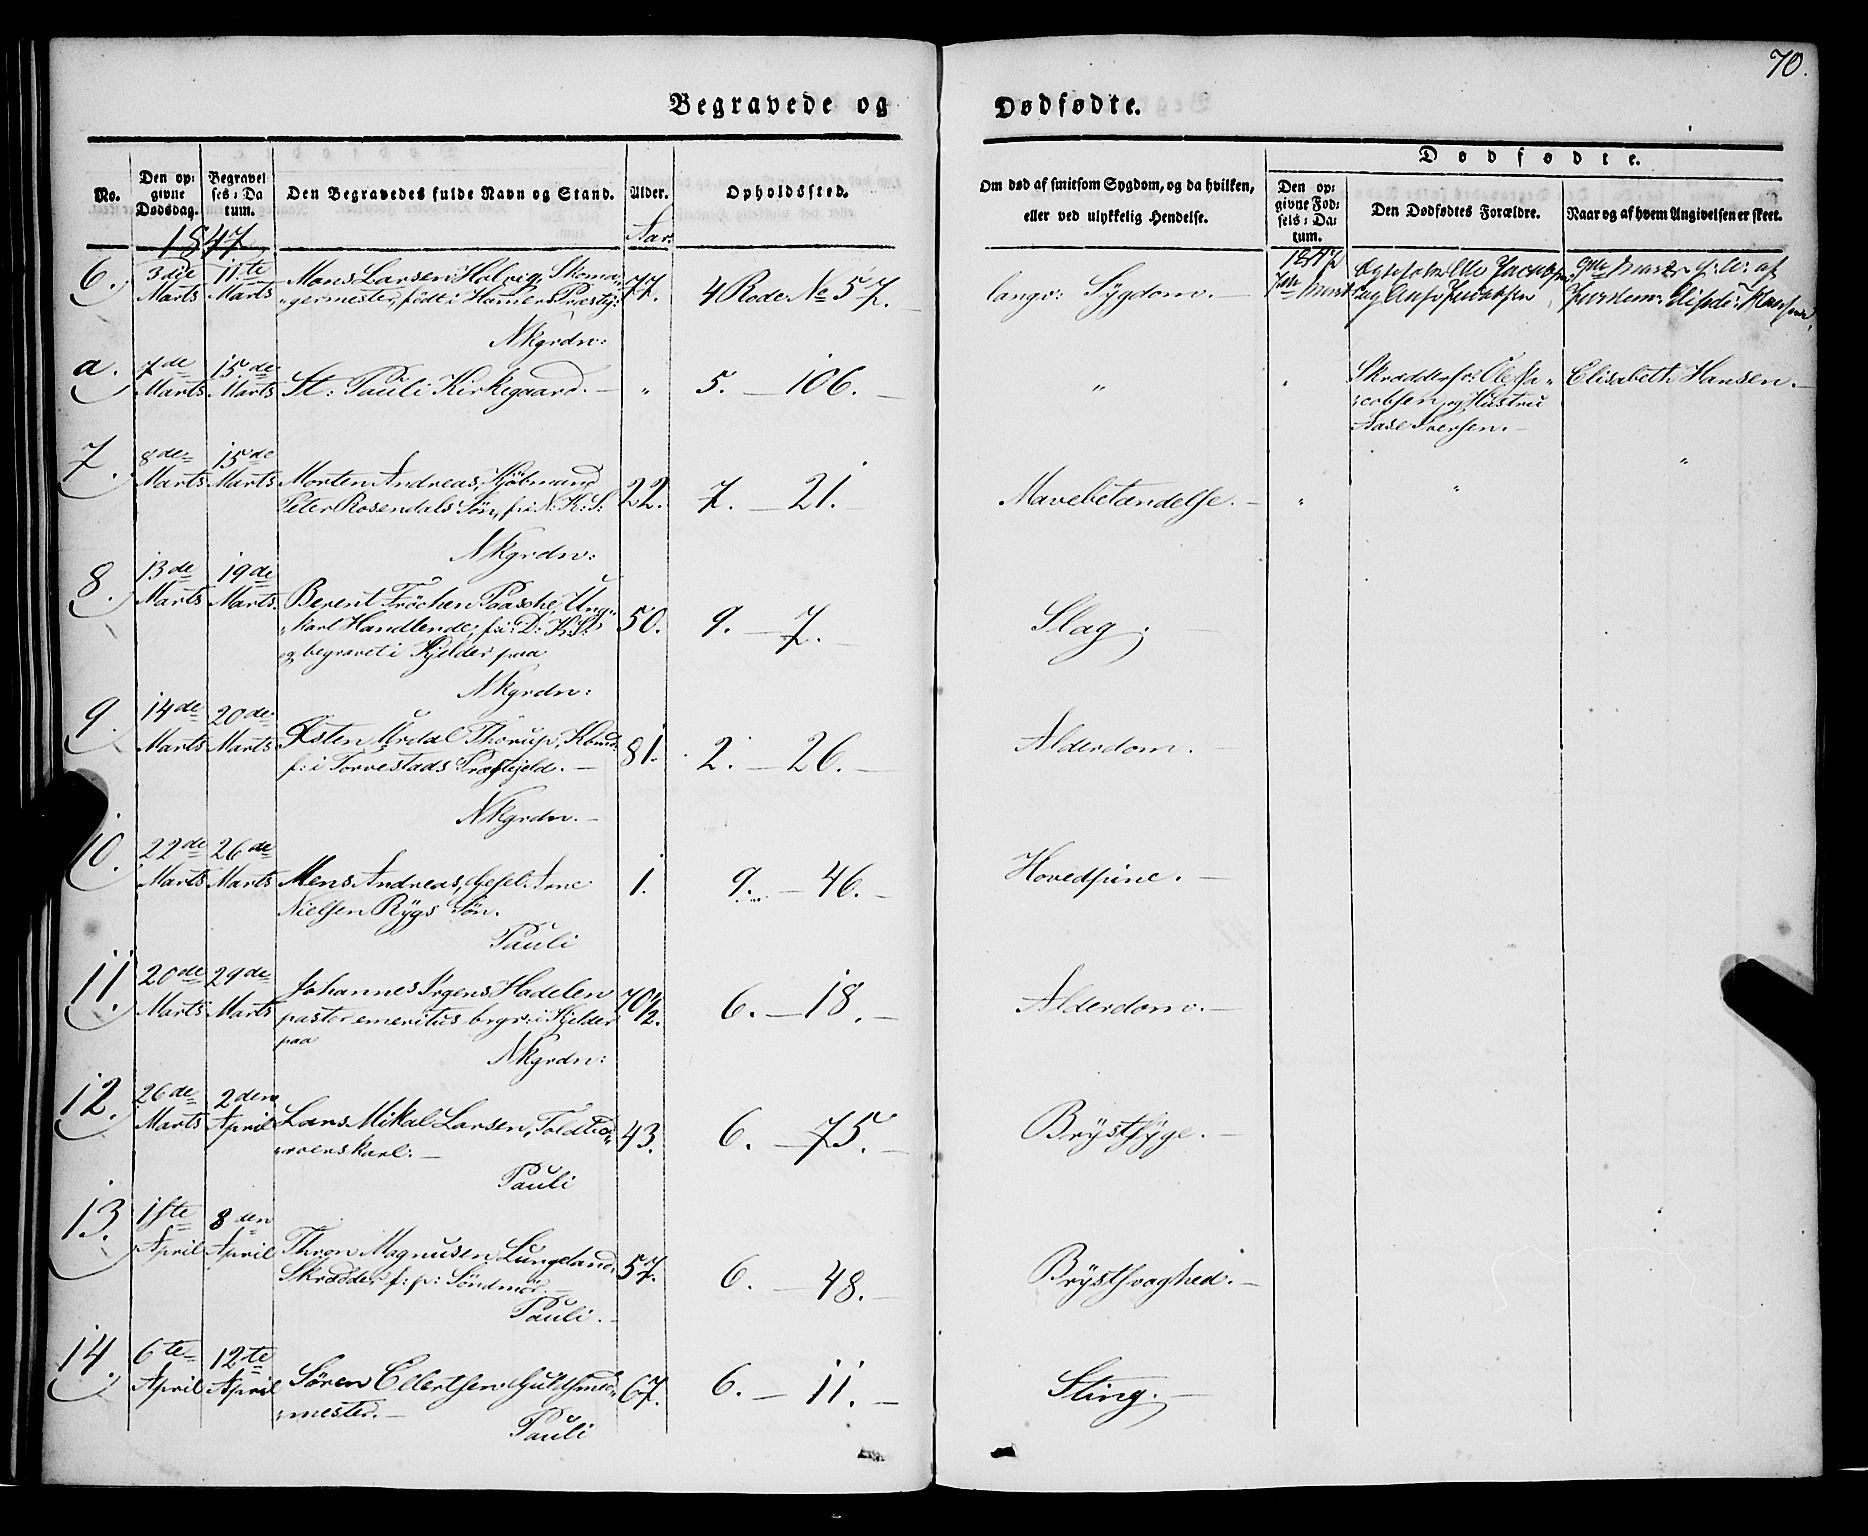 70.
Begravede og Dødfødte.
No.
Den opgivne Dødsdag.
Begravelses-Datum.
Den Begravedes fulde Navn og Stand.
Alder.
Opholdssted.
Om død af smitsom Sygdom, og da hvilken,
eller ved ulykkelig Hendelse.
Dødfødte.
Den opgivne Fødsels-Datum.
Den Dødfødtes Forældre.
Naar og af hvem Angivelsen er skeet.
1847
Aar.
1847
6. 3die Marts 11te Marts
Mons Larsen Skoma-
germester, født i Hamers Præstgj:
Nkgrdn:
77. 4 Rode No 57.
langv: Sygdom.
a. 7de Marts 15de Marts
St: Pauli Kirkegaard.
" 5. - 106.
"
Skrædder Ole Ja-
cobsen og Hustru
Aase Iversen.
Elisabeth Hansen.
7. 8de Marts 15de Marts
Morten Andreas, Kjøbmand
Peter Rosendals Søn, f: i N: K: S:
Nkgrdn:
22. 7. - 21.
Mavebetændelse.
8. 13de Marts 19de Marts
Berent Fröchen Paasche, Ung-
karl Handlende, f: i: D: K: S:
og begravet i Kjelder paa
Nkgrdn:
50. 9. - 7.
Slag.
9. 14de Marts 20de Marts
Østen Urdal Thorup, Kbmd:
f: i Torvestads Præstgjeld.
Nkgrdn.
81. 2. - 26.
Alderdom.
10. 22de Marts 26de Marts
Mons Andreas, Gesel: Arne
Nielsen Rygs Søn.
Pauli
1. 9. - 46.
Hovedpine.
11. 20de Marts 29de Marts
Johannes Irgens Hadelen
pastor emeritus begr: i Kjelder
paa
Nkgrdn:
70 1/2. 6. - 18.
Alderdom.
12. 26de Marts 2den April
Lars Mikal Larsen, Toldbod-
roerskarl.
Pauli
43. 6. - 75.
Brystsyge.
13. 1ste April 8den April
Thron Magnusen Lungeland,
Skrædder, f: p: Söndmör.
Pauli.
57. 6. - 48.
Brystsvaghed.
14. 6te April 12te April
Sören Ellertsen Guldsmed-
mester.
Pauli
67. 6. - 11.
Sting.